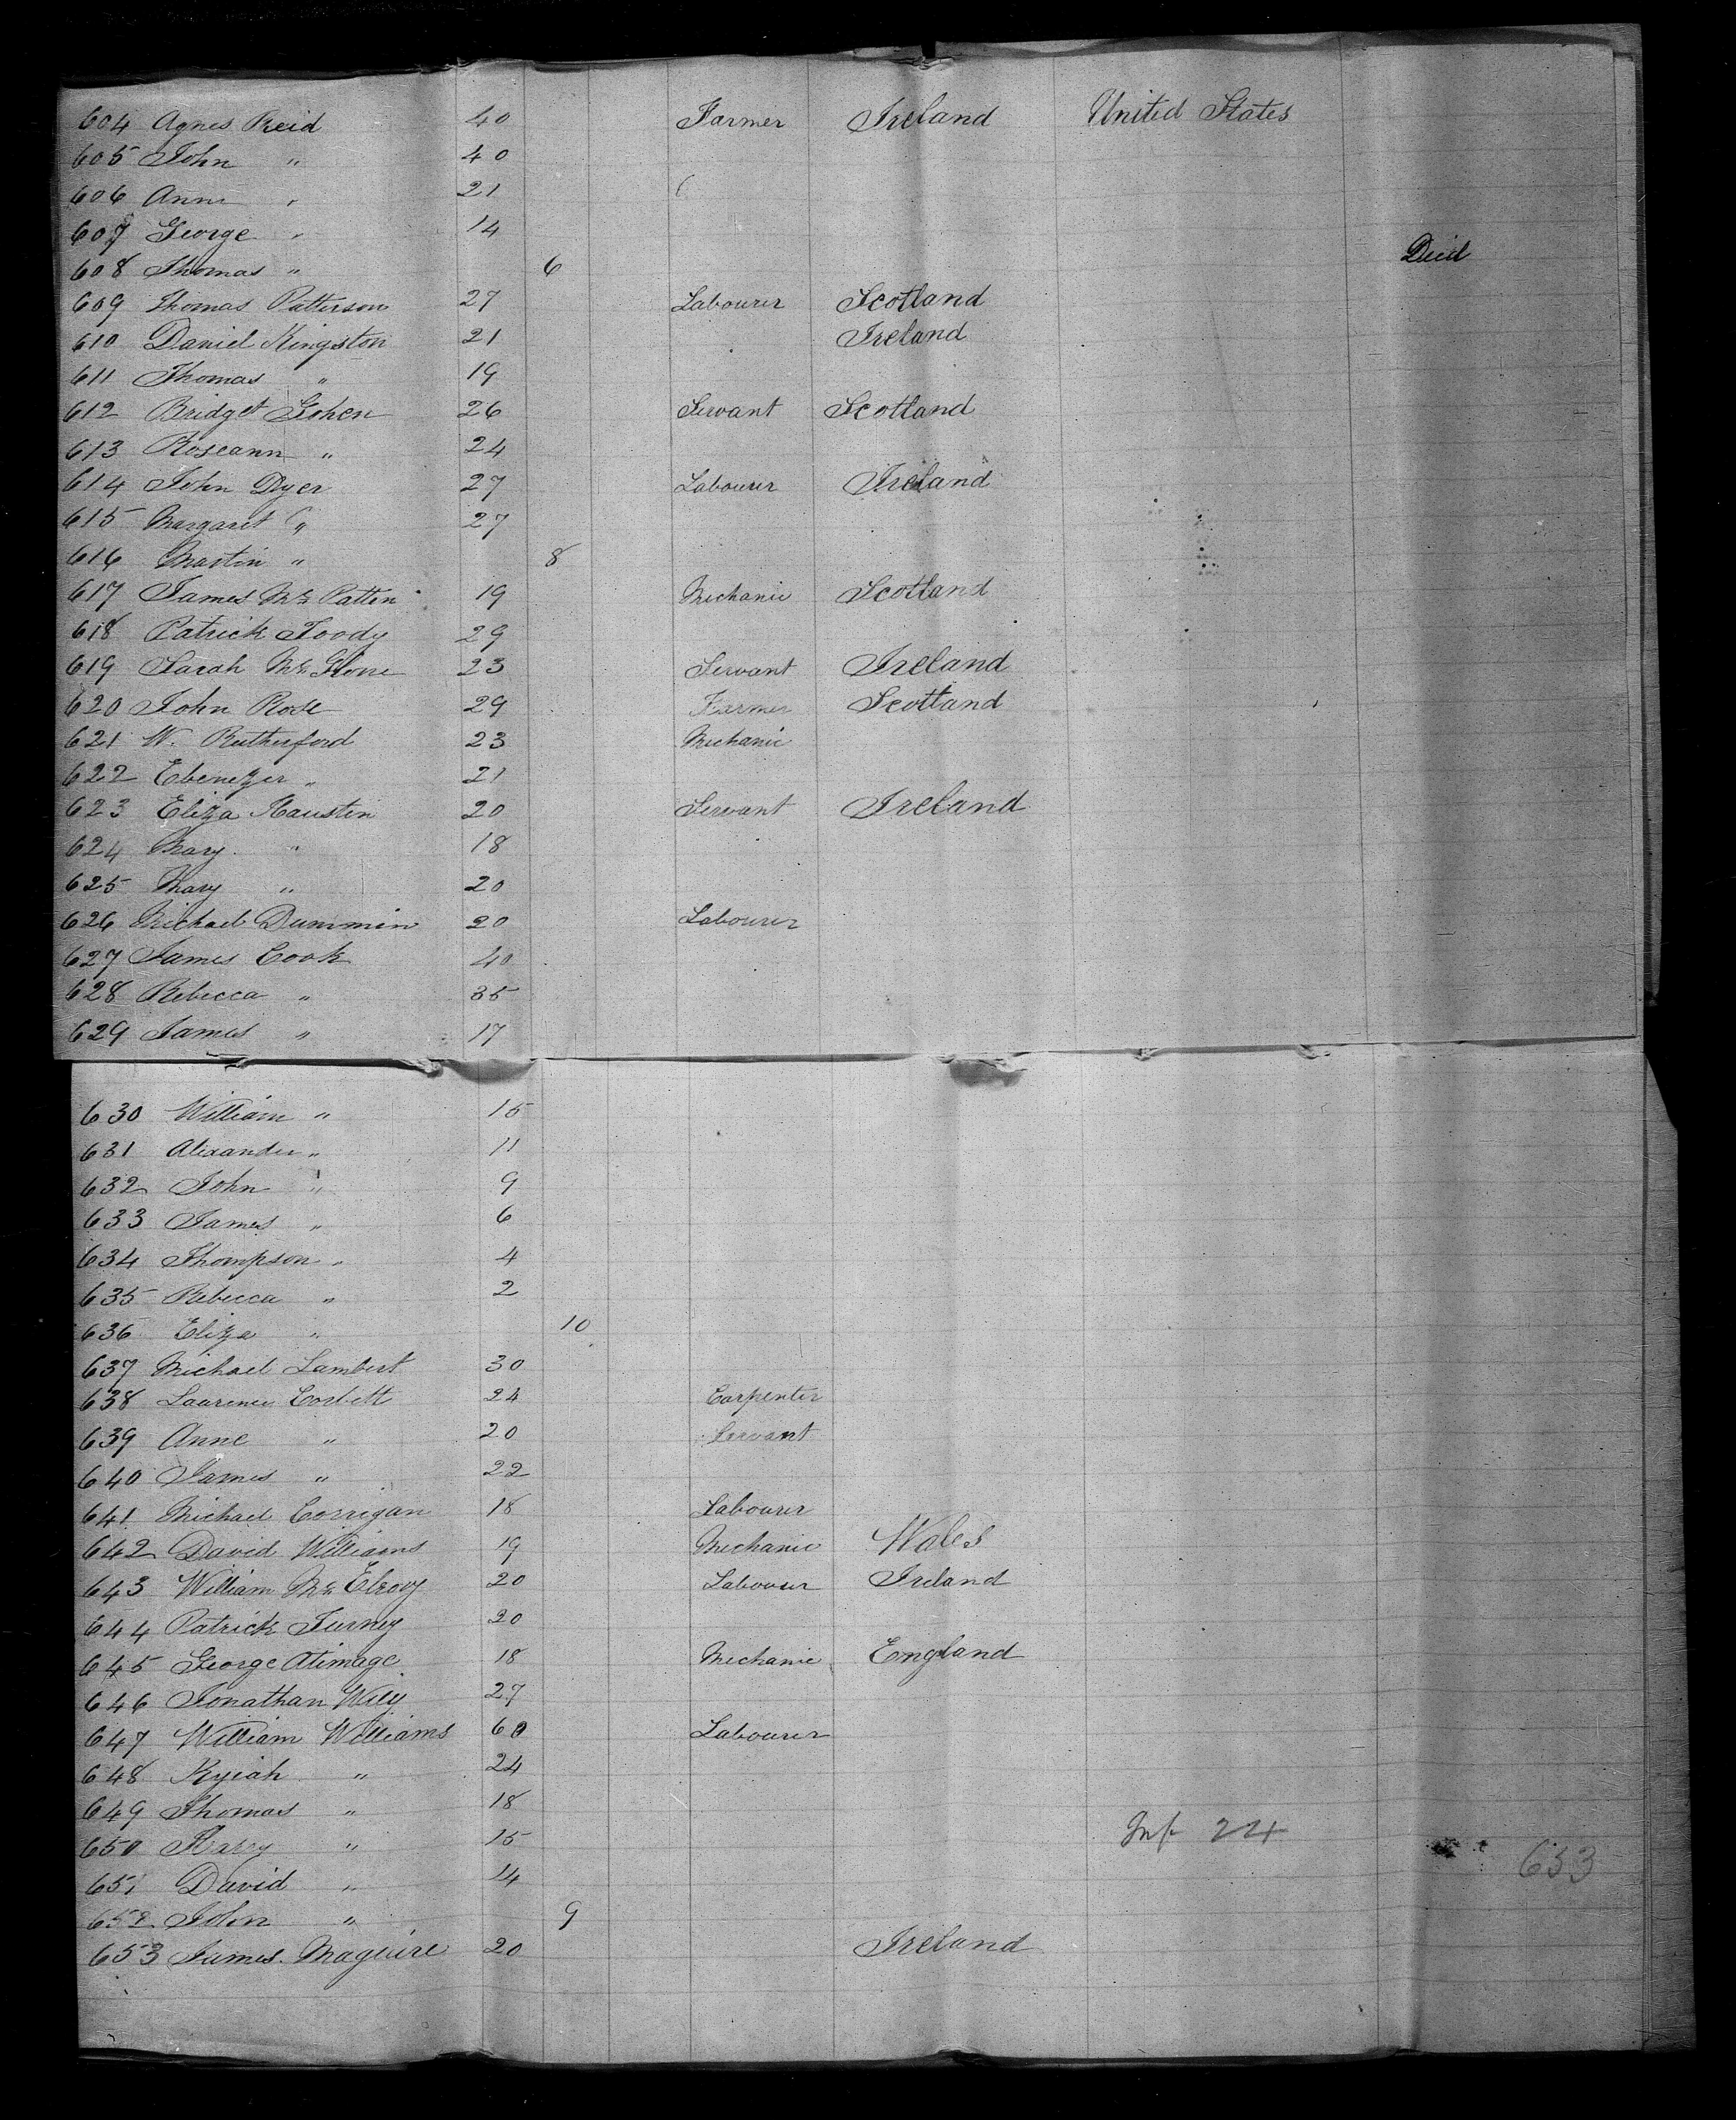 604 Agnes Reid 40 Farmer Ireland United States
605 John " 40
606 Anne " 21
607 George " 14
608 Thomas " 6 Died
609 Thomas Patterson 27 Labourer Scotland
610 Daniel Kingston 21 Ireland
611 Thomas " 19
612 Bridget Gohen 26 Servant Scotland
613 Roseann " 24
614 John Dyer 27 Labourer Ireland
615 Margaret " 27
616 Martin " 8
617 James Mc Patten 19 Mechanic Scotland
618 Patrick Toody 29
619 Sarah Mc 23 Servant Ireland
620 John Rose 29 Farmer Scotland
621 W. Rutherford 23 Mechanic
622 Ebenezer " 21
623 Eliza Haustin 20 Servant Ireland
624 Mary " 18
625 Mary " 20
626 Michael Dummin 20 Labourer
627 James Cook 40
628 Rebecca " 35
629 James " 17
630 William " 15
631 Alexander " 11
632 John " 9
633 James " 6
634 Thompson " 4
635 Rebecca " 2
636 Eliza " 10
637 Michael Lambert 30
638 Laurence Corbett 24 Carpenter
639 Anne " 20 Servant
640 James " 22
641 Michael Corrigan 18 Labourer
642 David Williams 19 Mechanic Wales
643 William Mc Elroy 20 Labourer Ireland
644 Patrick Turney 20
645 George Atimage 18 Mechanic England
646 Jonathan Wily 27
647 William Williams 60 Labourer
648 Kyiah " 24
649 Thomas " 18
650 Harry " 15 Inf 24
651 David " 14 653
652 John " 9
653 James Maguire 20 Ireland